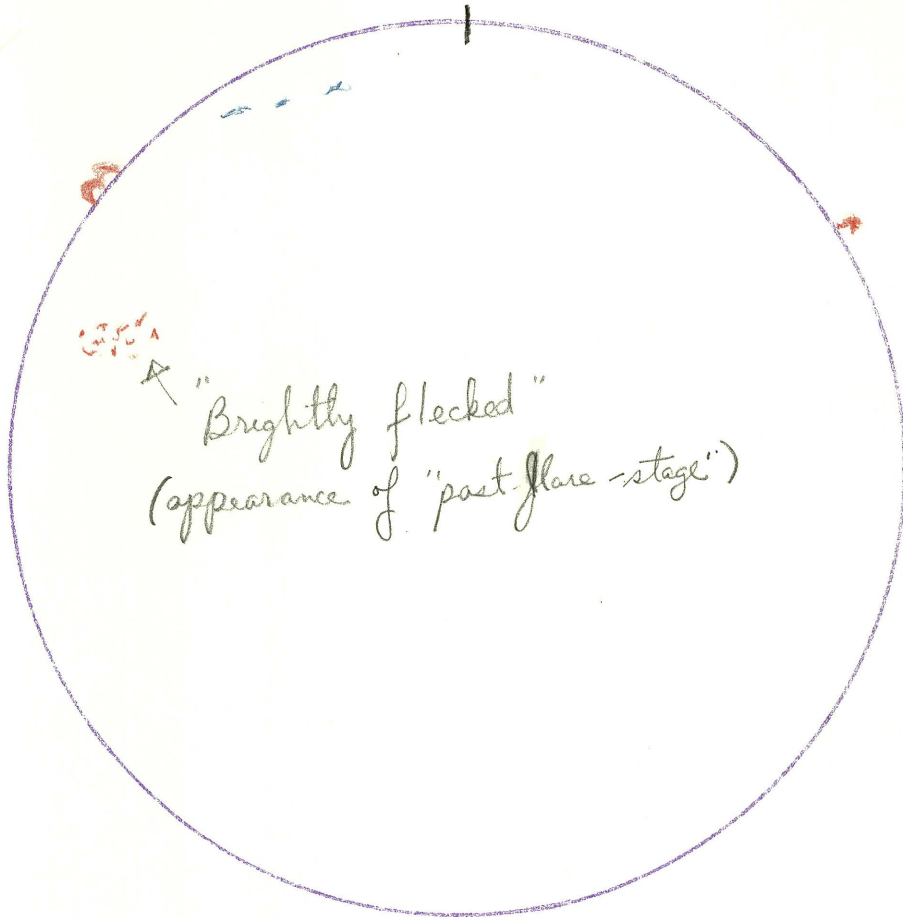 "Brightly flecked"
(appearance of "post-flare-stage")